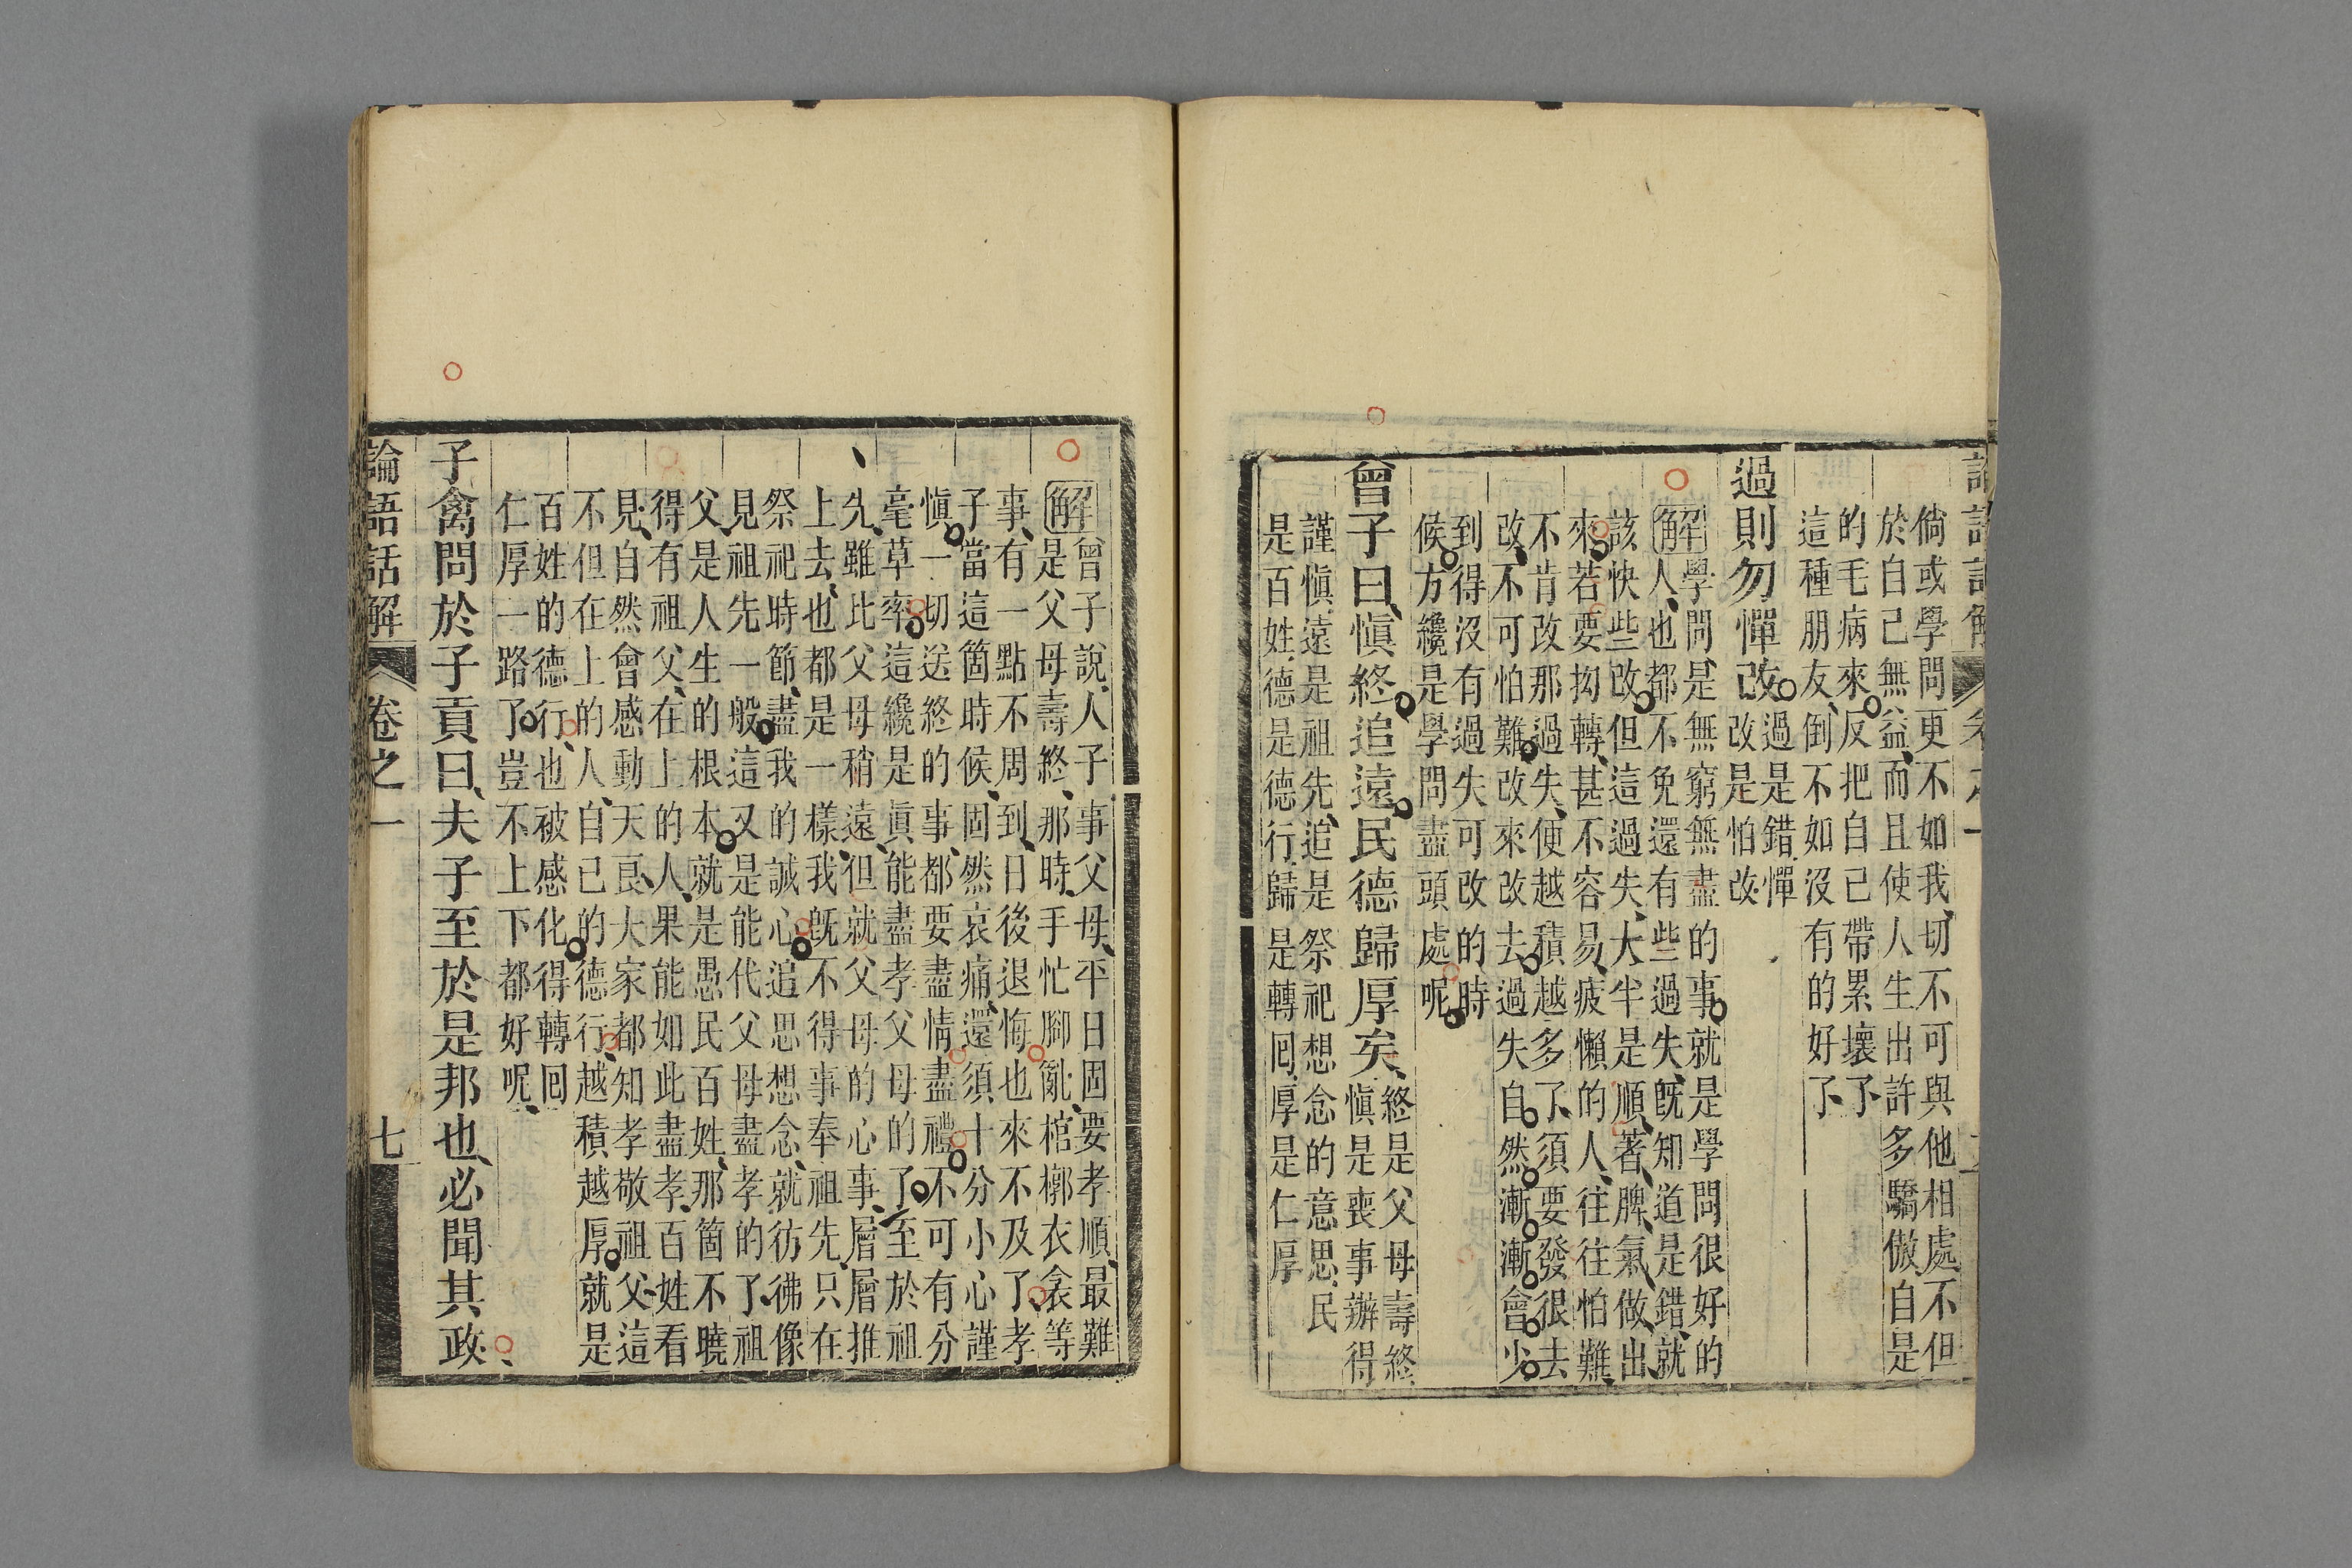 倘或學問更不如我、切不可與他相處、不但
於自己無益、而且使人生出許多驕傲自是
的毛病來、反把自己帶累壞了、
這種朋友、倒不如沒有的好了、
過則勿憚改
過是錯、憚
改是怕改
解學問是無窮無盡的事、就是學問很好的
人、也都不免還有些過失、旣知道是錯、就
該快些改、但這過失、大半是順著脾氣做出
來、若要拗轉、甚不容易、疲懶的人、往往怕難
不肯改、那過失、便越積越多了、須要發很去
改、不可怕難、改來改去、過失自然漸漸會少、
到得沒有過失可改的時
候、方纔是學問盡頭處呢、
曾子曰、愼終追遠、民德歸厚矣、
終是父母壽終
愼是喪事辦得
謹愼、遠是祖先、追是祭祀想念的意思、民
是百姓、德是德行、歸是轉囘、厚是仁厚
曾子說、人子事父母、平日固要孝順、最難
解是父母壽終、那時、手忙腳亂、棺槨衣衾等
事、有一點不周到、日後退悔也來不及了、孝
子當這箇時候、固然哀痛、還須十分小心謹
愼、一切送終的事、都要盡情盡禮、不可有分
毫草率、這纔是眞能盡孝父母的了、至於祖
先、雖比父母稍遠、但就父母的心事、層層推
上去、也都是一樣、我旣不得事奉祖先、只在
祭祀時節、盡我的誠心、追思想念、就彷彿像
見祖先一般、這又是能代父母盡孝的了、祖
父、是人生的根本、就是愚民百姓、那箇不曉
得有祖父、在上的人、果能如此盡孝、百姓看
見、自然會感動天良、大家都知孝敬祖父、這
不但在上的人、自己的德行、越積越厚、就是
百姓的德行、也被感化得轉囘
仁厚一路了、豈不上下都好呢、
子禽問於子貢曰、夫子至於是邦也、必聞其政、
論語話解 卷之一 七